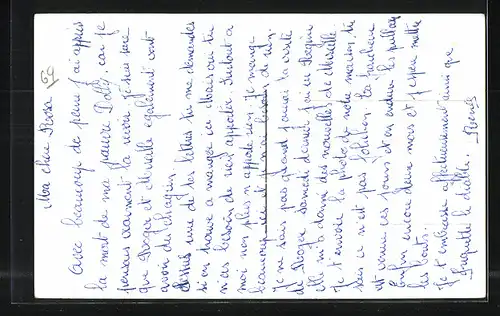 Ma chère Rosa
Avec beaucoup de peine j'ai appris
la mort de ma pauvre Dolly, car je
pensais vraiment la revoir je suis sûre
que Roger et Chryselle également vont
avoir du chagrin
Dans une de tes lettres tu me demandes
si on trouve à manger ici Mais oui tu
n'as besoin de rien apporter surtout à
moi non plus n'apporte rien je mange
beaucoup ici et je n'ai besoin de rien.
Je ne sais pas quand j'aurai la visite
de Roger samedi dernier j'ai eu Régine
elle m'a donné des nouvelles de Chryselle
Je t'envoie la photo de notre maison, tu
vois ce n'est pas la
est venu ces jours et on enlève les pulls
Enfin encore deux mois et j'espère mettre
les bouts.
Je t'embrasse affectueusement ainsi que
Huguette le diable.